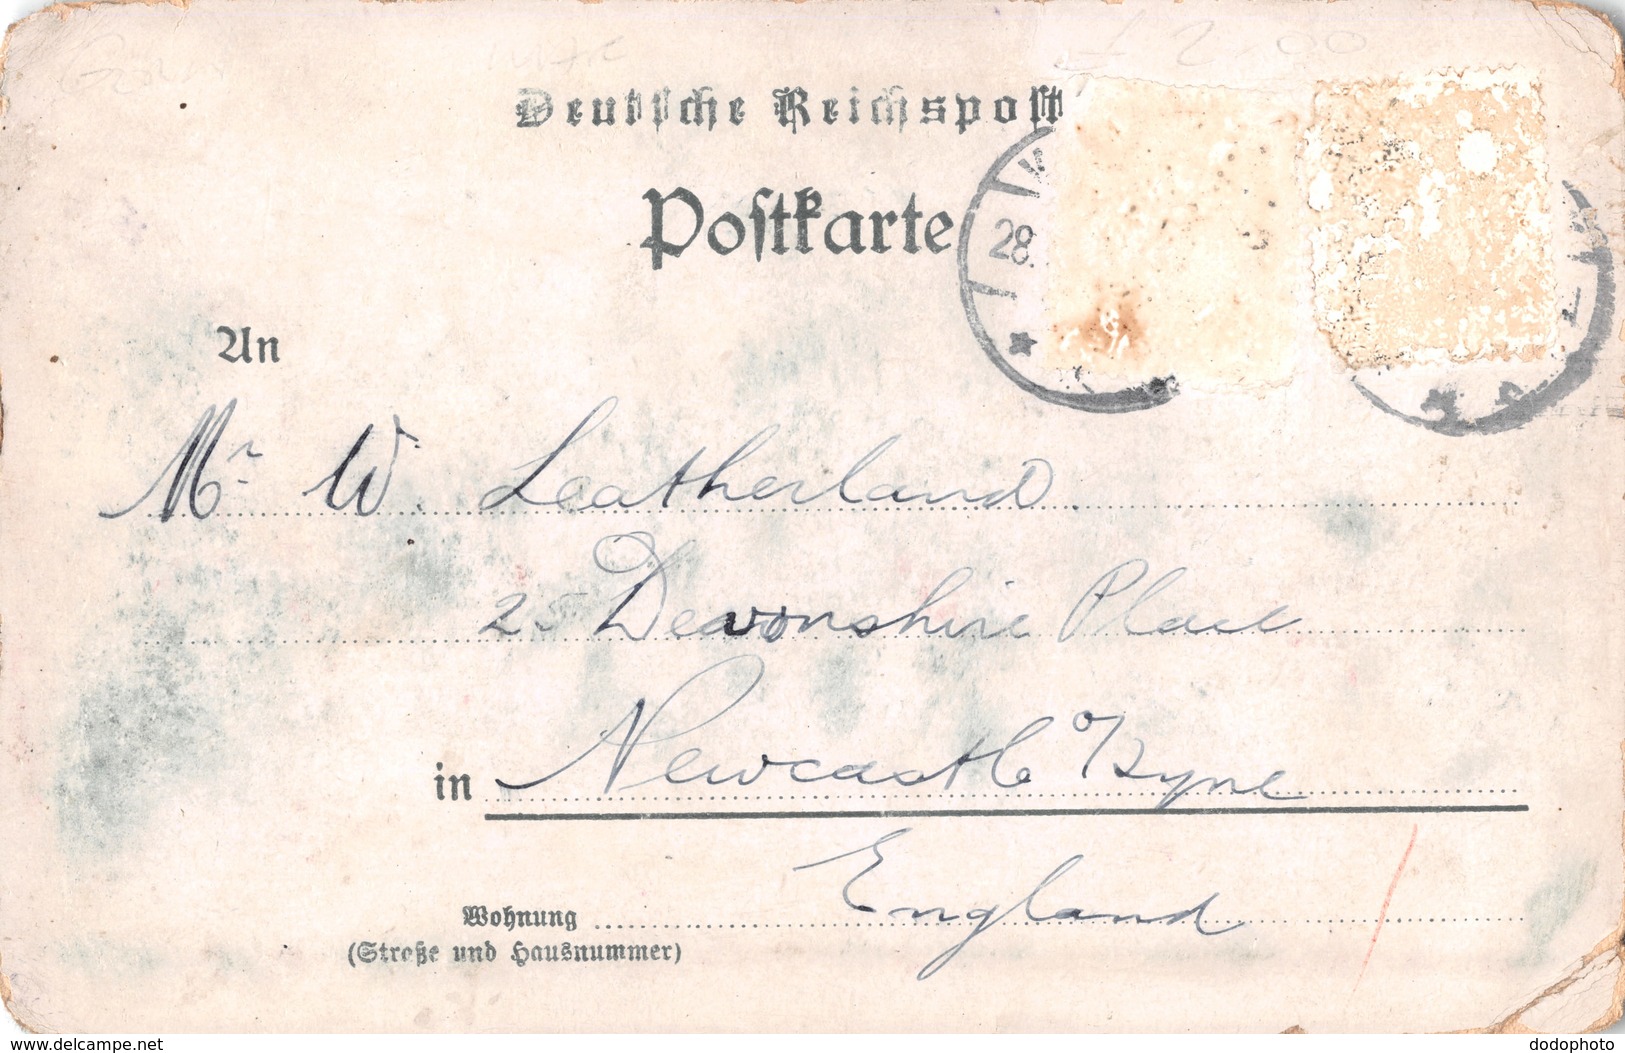 £ 2.00
Deutsche Reichspost
Postkarte
28.
An
Mr. W. Leatherland.
25 Devonshire Place
in Newcastle o/Tyne
England
Wohnung
(Straße und Hausnummer)
delcampe.net
dodophoto